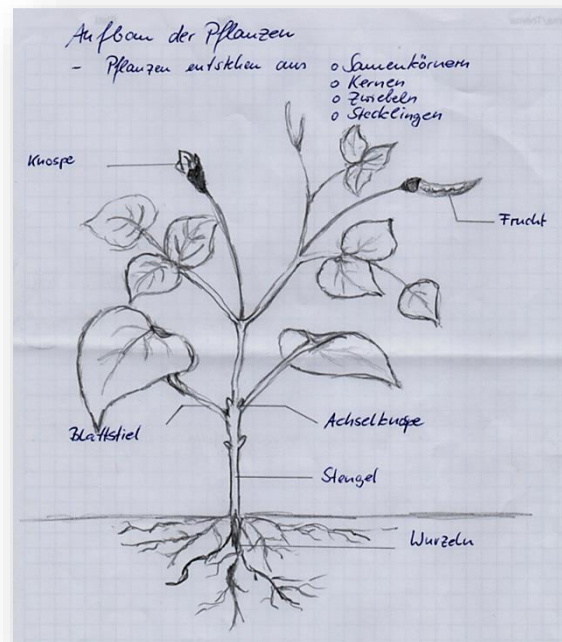 Aufbau der Pflanzen
- Pflanzen entstehen aus o Samenkörnern
o Kernen
o Zwiebeln
o Stecklingen
Knospe
Frucht
Blattstiel
Achselknospe
Stengel
Wurzeln